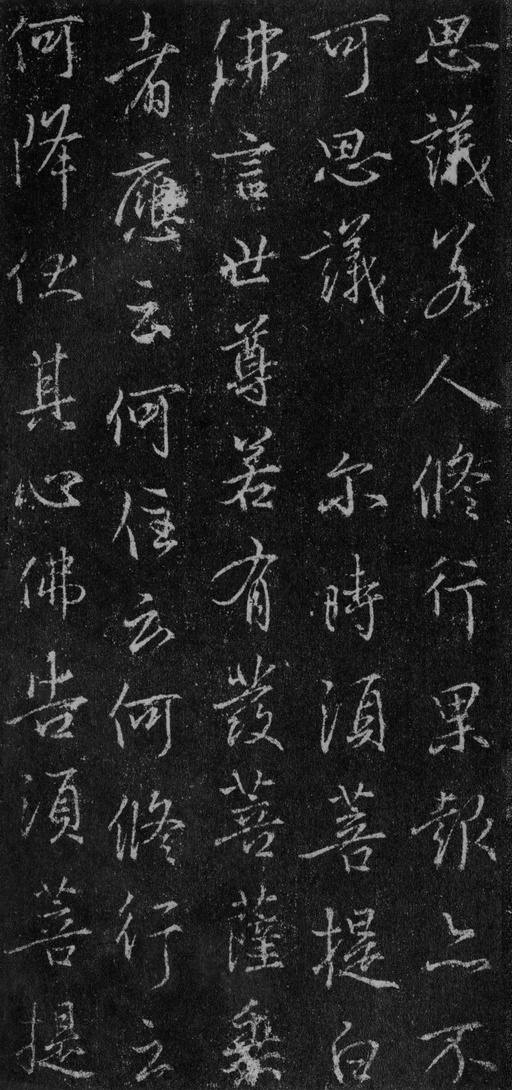 思議若人修行果報亦不
可思議 尔時須菩提白
佛言世尊若有發菩薩乘
者應云何住云何修行云
何降伏其心佛告須菩提